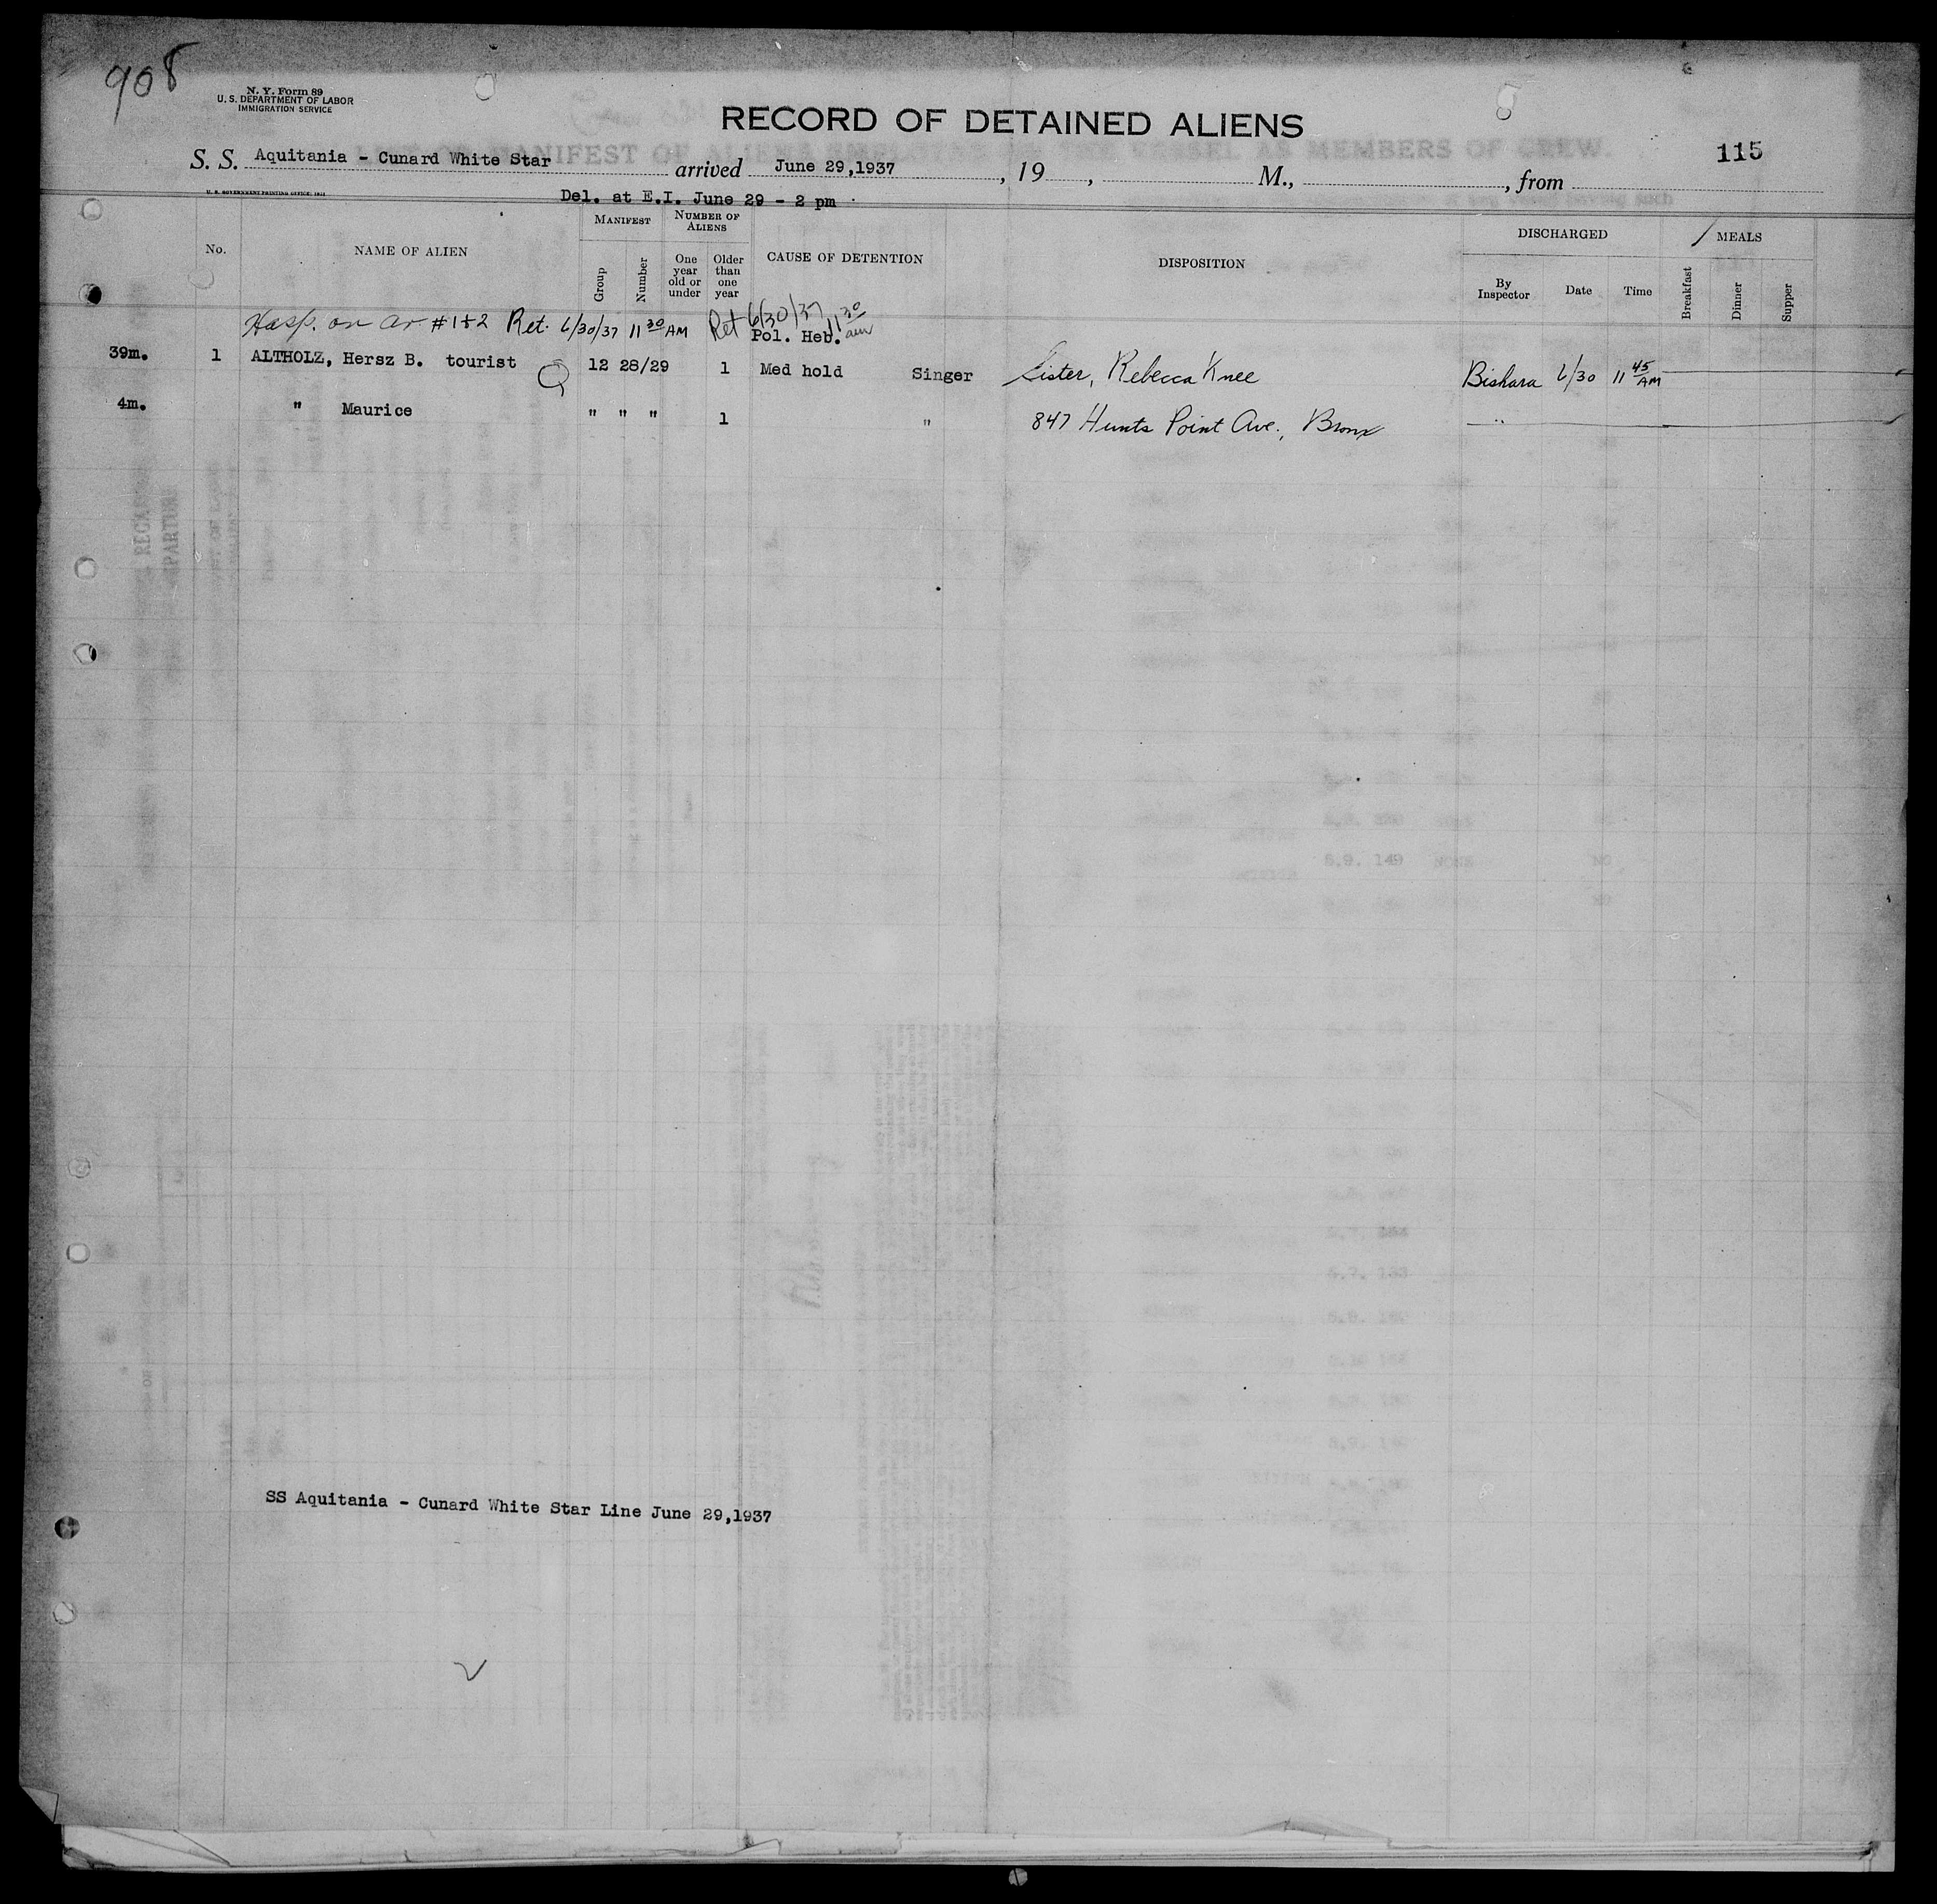 908
N. Y. Form 89
U. S. DEPARTMENT OF LABOR
IMMIGRATION SERVICE
RECORD OF DETAINED ALIENS
115
S. S. Aquitania - Cunard White Star arrived June 29,1937, 19 , M., , from
U. S. GOVERNMENT PRINTING OFFICE:
Del. at E.I. June 29 - 2 pm
No. NAME OF ALIEN MANIFEST Group Number NUMBER OF ALIENS One year old or under Older than one year CAUSE OF DETENTION DISPOSITION DISCHARGED By Inspector Date Time MEALS Breakfast Dinner Supper
Hosp. on ar #1+2 Ret. 6/30/37 11 30 AM Ret 6/30/37 11 30 am
Pol. Heb.
39m. 1 ALTHOLZ, Hersz B. tourist 12 28/29 1 Med hold Singer Sister, Rebecca Knee Bishara 6/30 11 45 AM
4m. " Maurice " " " 1 " 847 Hunts Point Ave., Bronx "
SS Aquitania - Cunard White Star Line June 29,1937